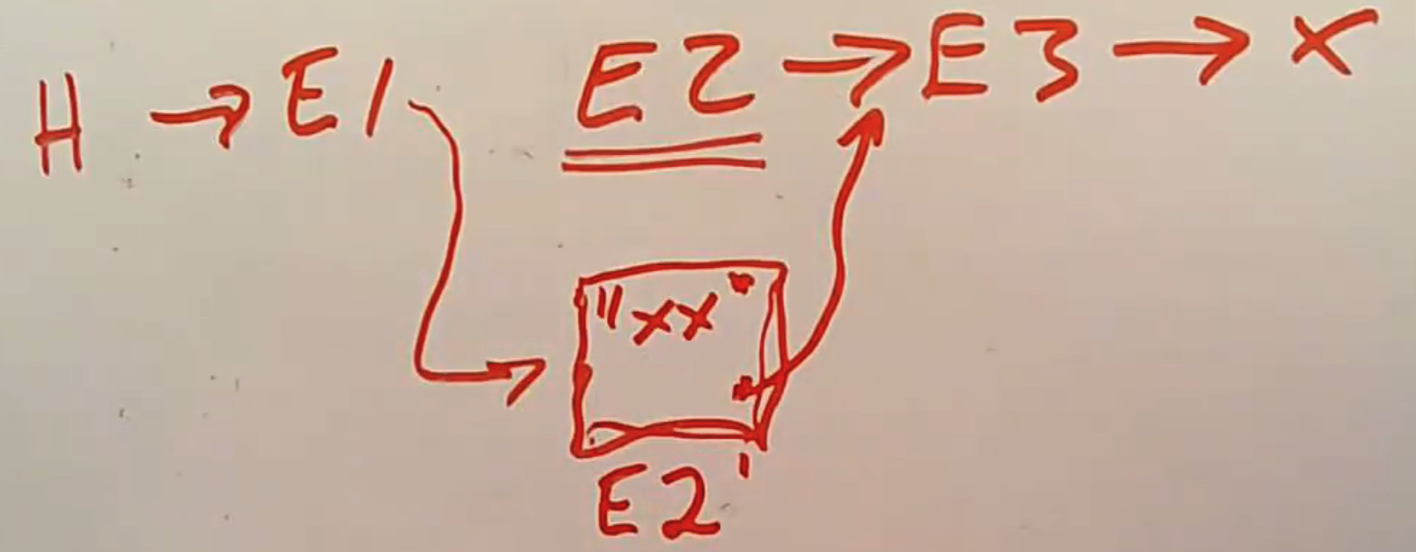 H → E1 E2 → E3 → X
"xx"
E2'